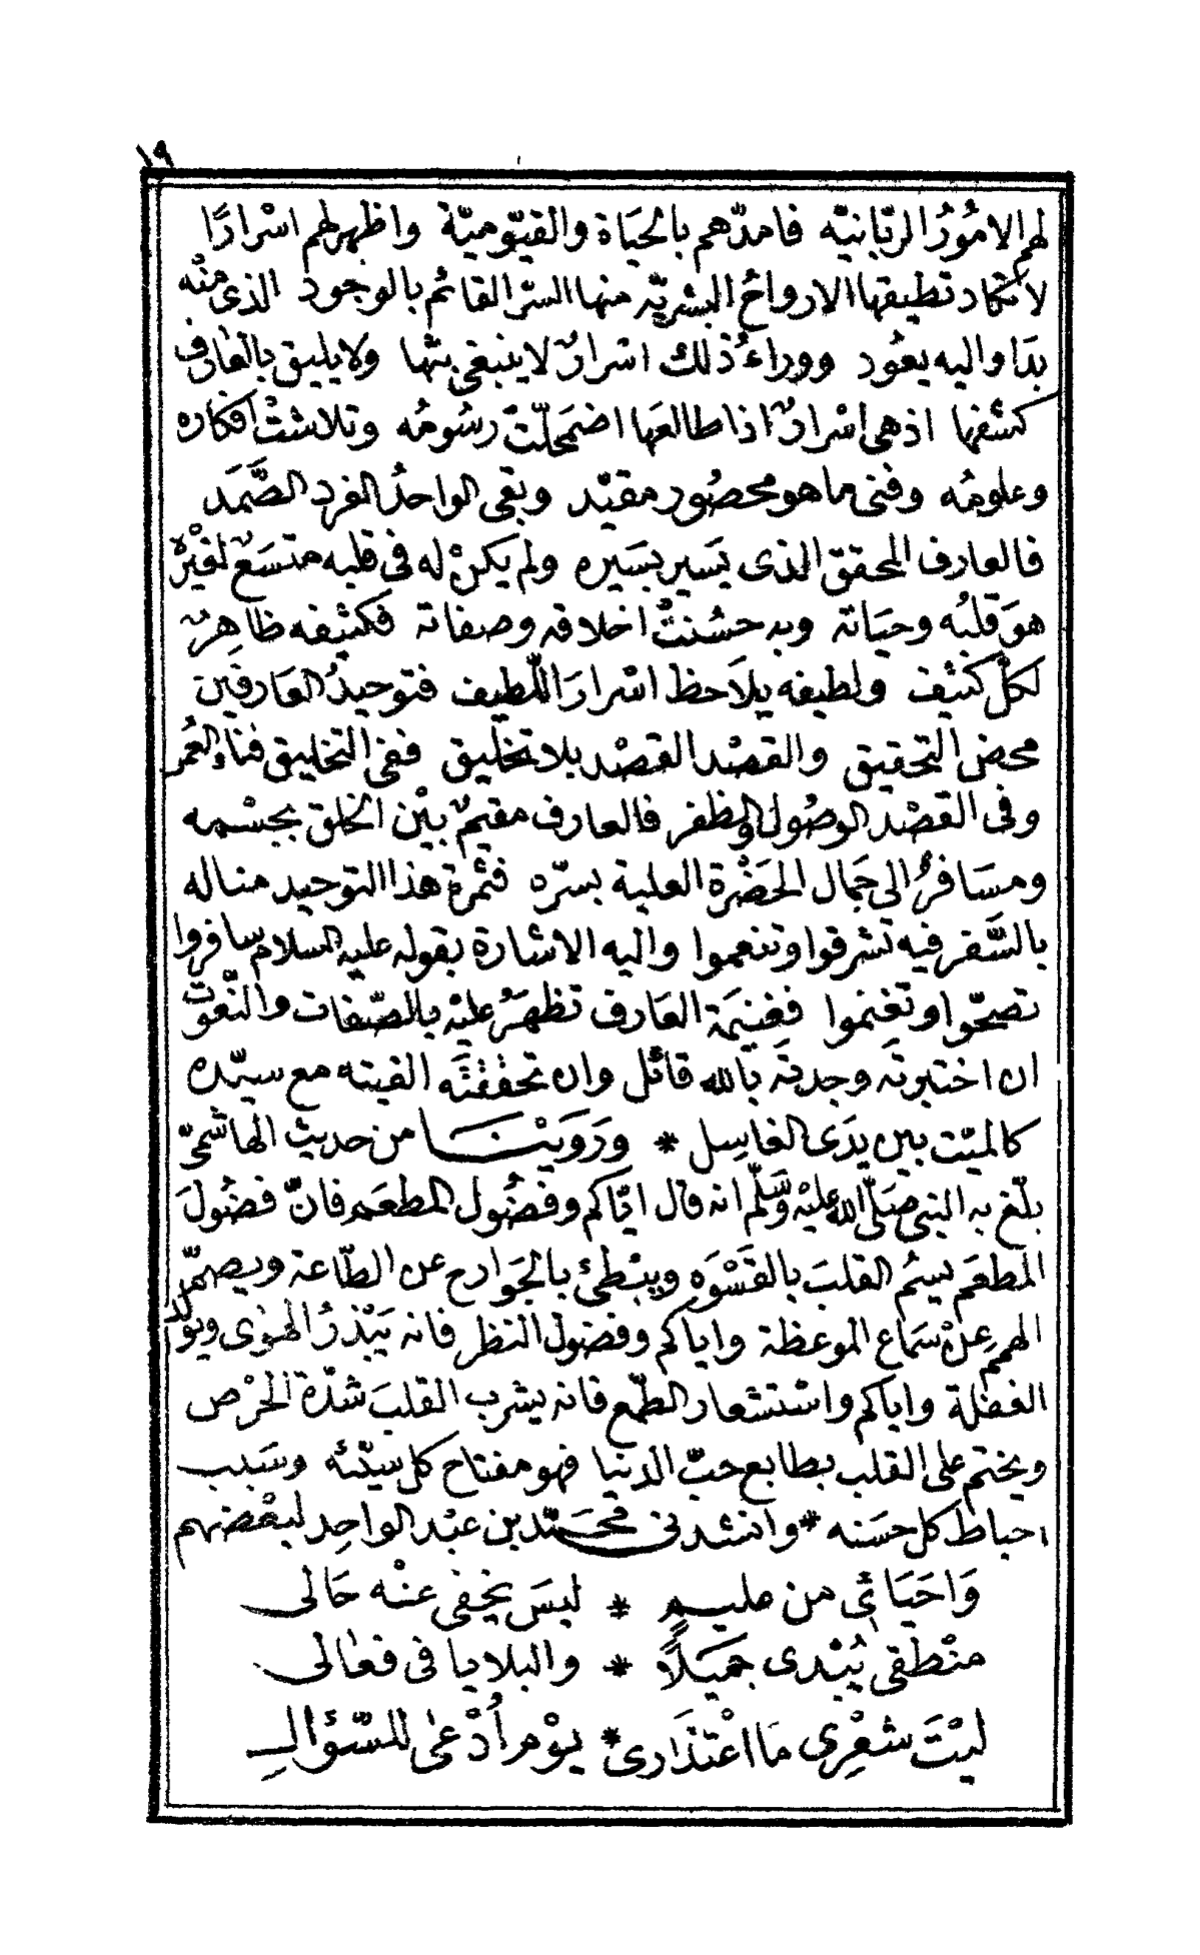 ١٩
لهم الامُوُرُ الرّبّانيّه فامدّهم بالحَيَاة والقيّوميّة واظهر لهم اسْرارًا
لا تكاد تطيقها الارواحُ البشريّه منها السرّ القائم بالوجود الذى منْه
بدَا واليه يعوُد ووراءُ ذلك اسْرارٌ لا ينبغى بثها ولا يليق بالعارف
كشفها اذ هى اسْرارٌ اذا طالعَها اضمحلّتْ رسُومُه وتلاشتْ افكاره
وعلومُه وفنى ما هو محصُور مقيّد وبقى الواحدُ الفرد الصَّمَد
فالعارف المحقق الذى يَسير بسَيره ولم يكنْ له فى قلبه متسَعٌ لغيْره
هوَ قلبُه وحيَاته وبه حسُنتْ اخلاقه وصفاته فكثيفه ظاهِرٌ
لكلّ كثيف ولطيفه يلاَحظ اسْرارَ اللّطيف فتوحيدُ العَارفين
محض التحقيق والقصْد القصْد بلا تخليق ففى التخليق فناء العُمر
وفى القصْد الوصُول والظفر فالعارف مقيمٌ بيْن الخلق بجسْمه
ومسَافرٌ الى جَمال الحَضْرة العلية بسرّه فثمرة هذا التوحيد مناله
بالسَّفر فيه تشرقوا وتنعموا واليه الاشارة بقوله عليه السلام سافروا
تصحّوا وتغنموا فغنيمَة العَارف تظهَرُ عليْه بالصّفات والنّعوت
ان اختبرتَه وجدتَه بالله قائل وان تحققتَه الفيته مع سيّده
كالميّت بين يدَى الغاسِل * ورَوَيْنَا من حديث الهاشمىّ
بلّغ به النبى صَلّى الله عليْه وَسَلّم انه قال ايّاكم وفضُول المطعَم فانّ فضُولَ
المَطعَم يسِمُ القلبَ بالقَسْوَه ويبْطئ بالجَوَارح عن الطّاعة ويصمّ
الهمم عِنْ سَمَاع الموعظة واياكم وفضول النظر فانه يَبْذرُ الهَوى ويولّد
الغفلة واياكم واسْتشعار الطمع فانه يشرب القلبَ شدّة الحرْص
ويختم على القلب بطابع حبّ الدنيا فهو مفتاح كل سيّئه وسَبب
احباط كل حسَنه * وانشدنى محَمّد بن عبْد الواحِد لبعْضهم
وَاحَيَائى من مليم * ليسَ يخفى عنْه حَالى
منْطقى يُبْدى جميَلاً * والبلايا فى فعَالى
ليْتَ شعْرِى مَا اعْتذَارى * يوْم أدْعىٰ للسّؤال